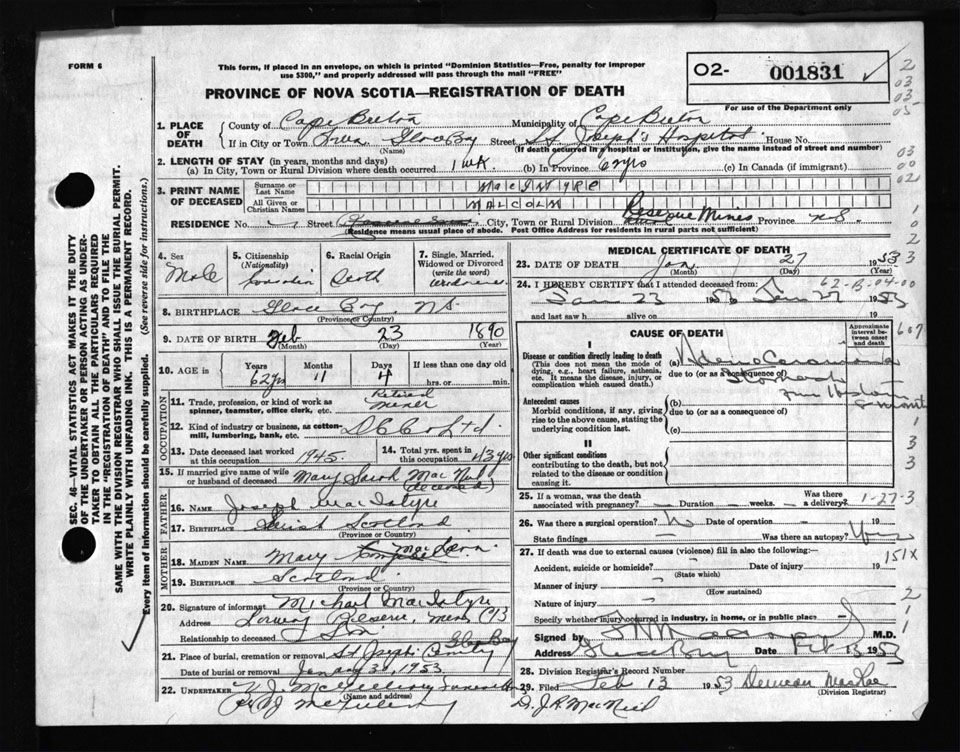 FORM 6
This form, if placed in an envelope, on which is printed "Dominion Statistics—Free, penalty for improper
use $300," and properly addressed will pass through the mail "FREE"
PROVINCE OF NOVA SCOTIA—REGISTRATION OF DEATH
O2- 001831
For use of the Department only
1. PLACE OF DEATH
County of Cape Breton Municipality of Cape Breton
If in City or Town Town Glace Bay Street St. Joseph's Hospital House No.
(Name) (If death occurred in a hospital or institution, give the name instead of street and number)
2. LENGTH OF STAY (in years, months and days)
(a) In City, Town or Rural Division where death occurred 1 wk (b) In Province 62 yrs (c) In Canada (if immigrant)
3. PRINT NAME OF DECEASED
Surname or Last Name MacINTYRE
All Given or Christian Names MALCOLM
RESIDENCE No. Street City, Town or Rural Division Reserve Mines Province N.S.
(Residence means usual place of abode. Post Office Address for residents in rural parts not sufficient)
4. Sex Male
5. Citizenship (Nationality) Canadian
6. Racial Origin Scotch
7. Single, Married, Widowed or Divorced (write the word) Widower
8. BIRTHPLACE Glace Bay NS
(Province or Country)
9. DATE OF BIRTH Feb 23 1890
(Month) (Day) (Year)
10. AGE in Years Months Days If less than one day old
62 yrs 11 4 hrs. or min.
OCCUPATION
11. Trade, profession, or kind of work as spinner, teamster, office clerk, etc. Retired Miner
12. Kind of industry or business, as cotton-mill, lumbering, bank, etc. D C Co Ltd
13. Date deceased last worked at this occupation 1945.
14. Total yrs. spent in this occupation 43 yrs
15. If married give name of wife or husband of deceased Mary Sarah MacNeil (deceased)
FATHER
16. NAME Joseph MacIntyre
17. BIRTHPLACE Scotland
(Province or Country)
MOTHER
18. MAIDEN NAME Mary
19. BIRTHPLACE Scotland
(Province or Country)
20. Signature of informant Michael MacIntyre
Address Lorway Reserve Mines CB
Relationship to deceased Son
21. Place of burial, cremation or removal St Joseph Cemetery Glace Bay
Date of burial or removal January 30, 1953
22. UNDERTAKER
(Name and address)
MEDICAL CERTIFICATE OF DEATH
23. DATE OF DEATH Jan 27 1953
(Month) (Day) (Year)
24. I HEREBY CERTIFY that I attended deceased from:
62-B-04-00
Jan 23 1953 to Jan 27 1953
and last saw h alive on 19
CAUSE OF DEATH
Approximate interval between onset and death
I
Disease or condition directly leading to death
(This does not mean the mode of dying, e.g., heart failure, asthenia, etc. It means the disease, injury, or complication which caused death.)
(a) Adeno Carcinoma
due to (or as a consequence of) Stomach
Antecedent causes
Morbid conditions, if any, giving rise to the above cause, stating the underlying condition last.
(b)
due to (or as a consequence of)
(c)
II
Other significant conditions
contributing to the death, but not related to the disease or condition causing it.
25. If a woman, was the death associated with pregnancy? Duration weeks. Was there a delivery?
1-27-3
26. Was there surgical operation? No Date of operation 19
State findings Was there an autopsy? Yes
151X
27. If death was due to external causes (violence) fill in also the following:—
Accident, suicide or homicide? Date of injury 19
(State which)
Manner of injury
(How sustained)
Nature of injury
Specify whether injury occurred in industry, in home, or in public place
Signed by M.D.
Address Glace Bay Date Feb 13 1953
28. Division Registrar's Record Number
29. Filed Feb 13 1953 Duncan MacRae
(Division Registrar)
Dr. J.R. MacNeil
SEC. 46—VITAL STATISTICS ACT MAKES IT THE DUTY
OF THE UNDERTAKER OR PERSON ACTING AS UNDER-
TAKER TO OBTAIN ALL THE PARTICULARS REQUIRED
IN THE "REGISTRATION OF DEATH" AND TO FILE THE
SAME WITH THE DIVISION REGISTRAR WHO SHALL ISSUE THE BURIAL PERMIT.
WRITE PLAINLY WITH UNFADING INK. THIS IS A PERMANENT RECORD.
Every item of information should be carefully supplied. (See reverse side for instructions.)